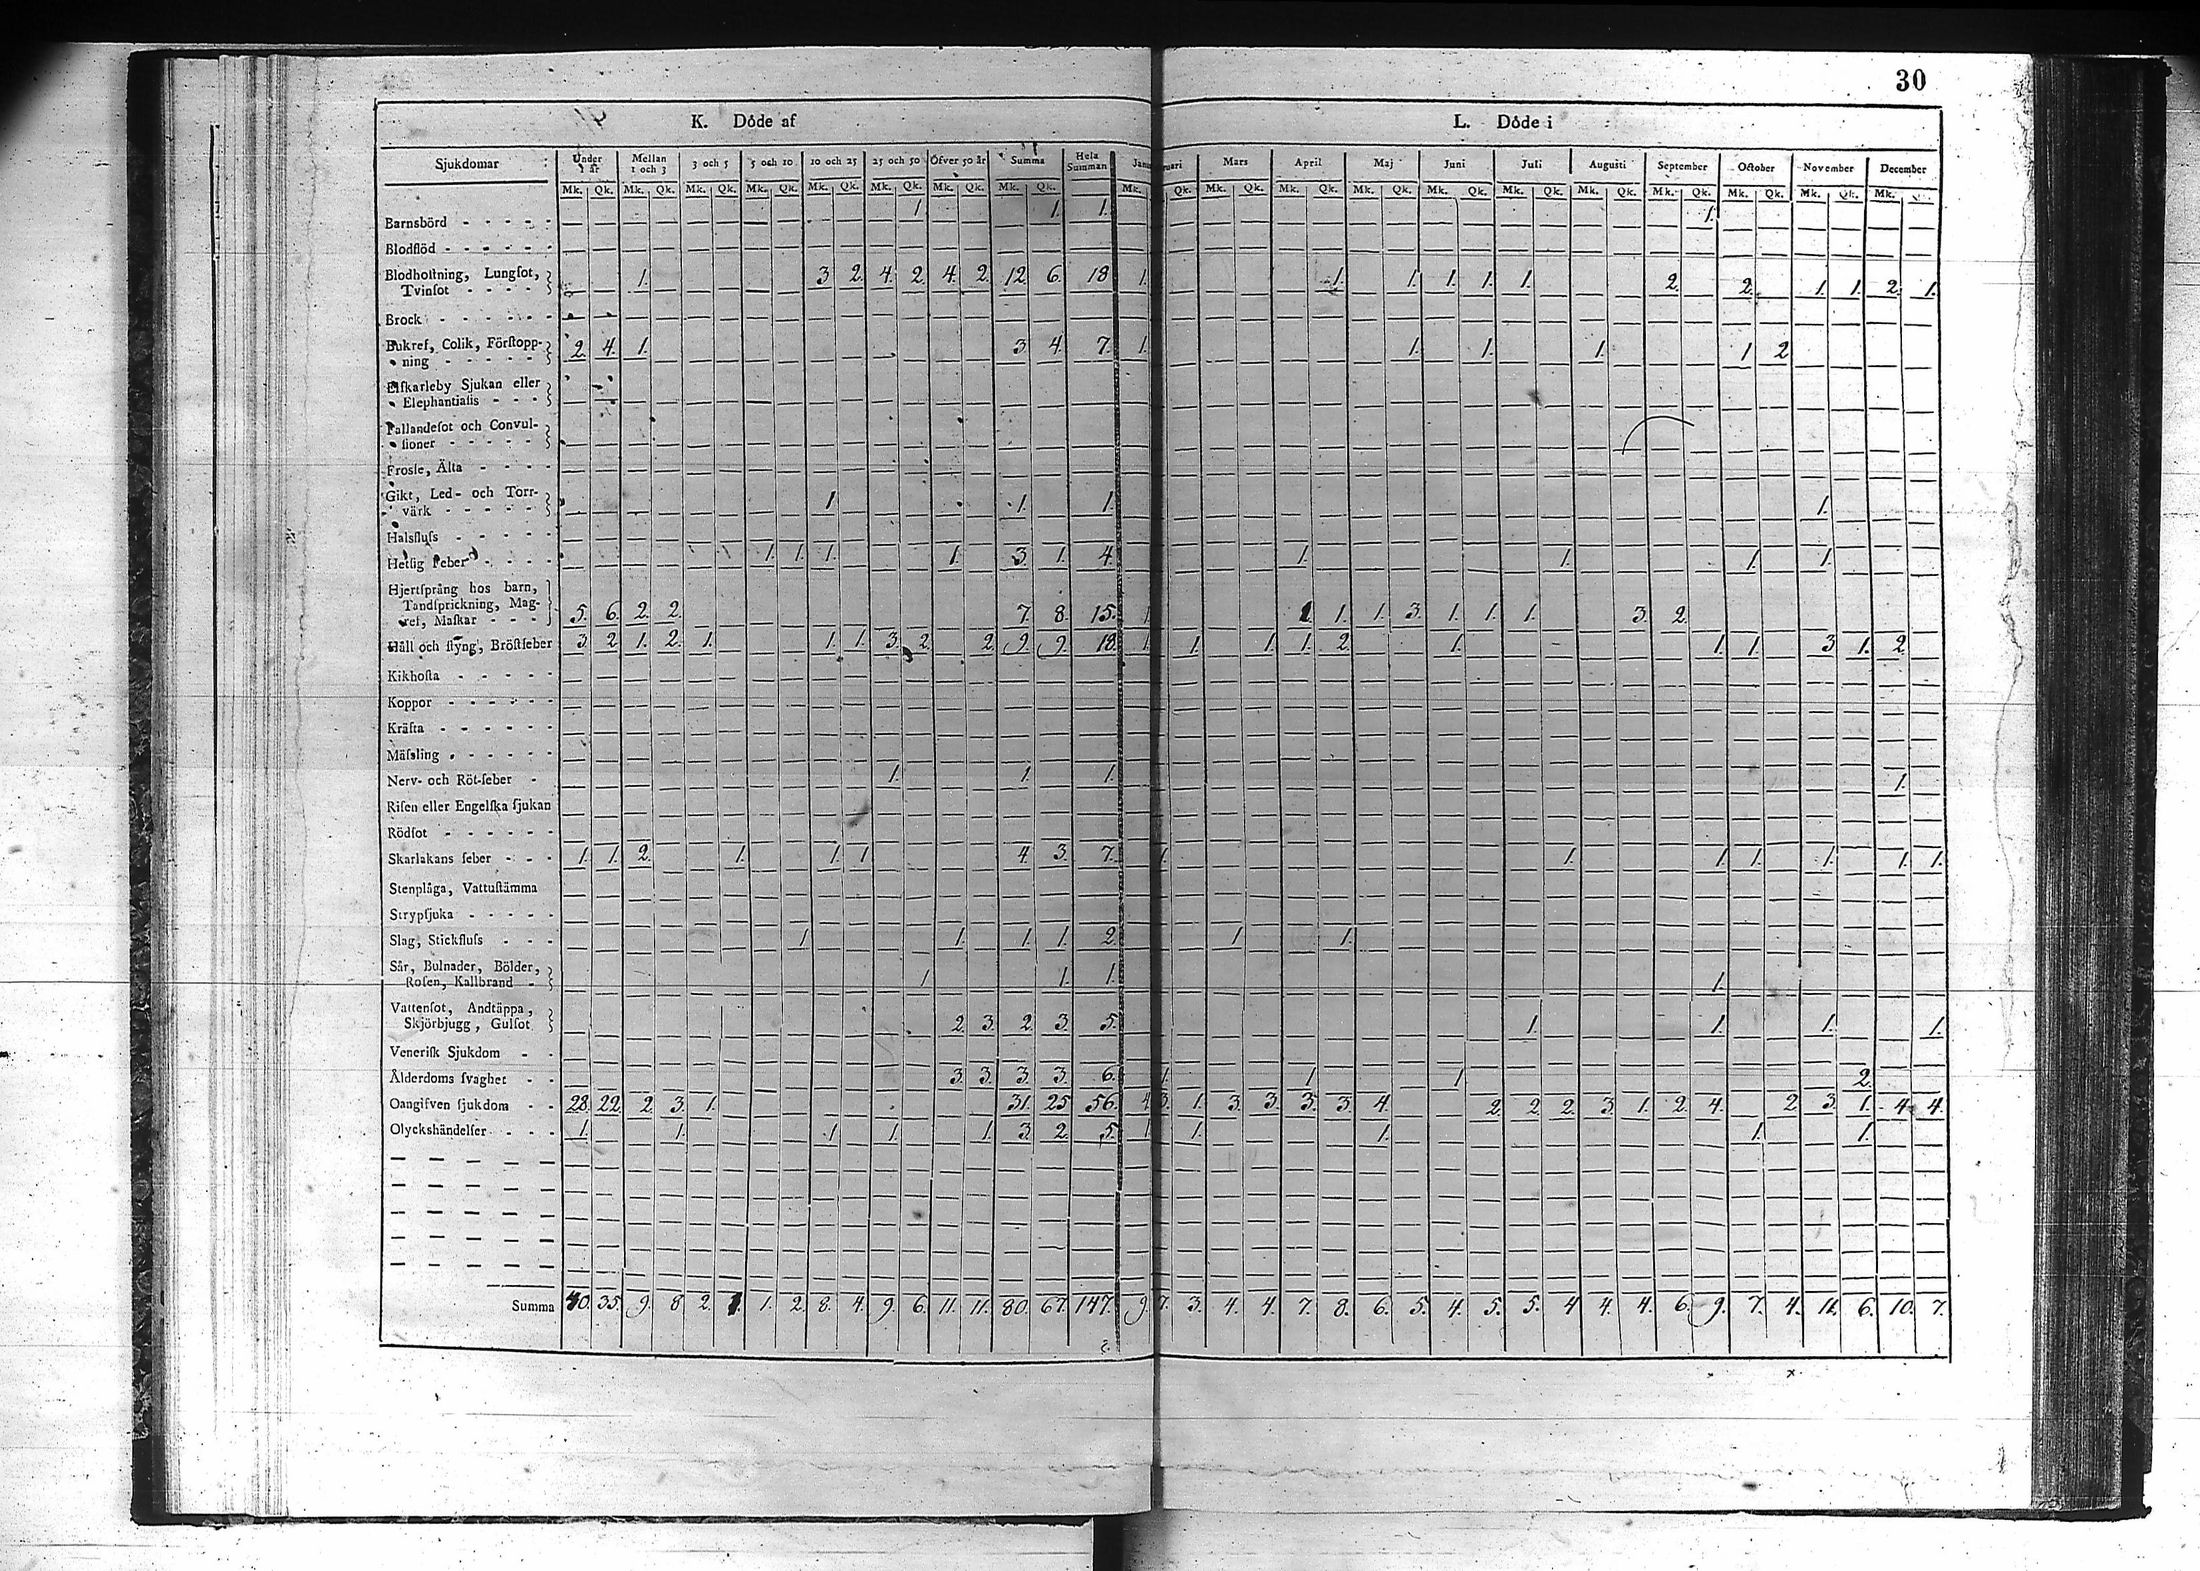 30
K. Döde af
L. Döde i
Sjukdomar Under 1 år Mellan 1 och 3 3 och 5 5 och 10 10 och 25 25 och 50 Öfver 50 år Summa Hela Summan Janu uari Mars April Maj Juni Juli Augusti September October November December
Mk. Qk. Mk. Qk. Mk. Qk. Mk. Qk. Mk. Qk. Mk. Qk. Mk. Qk. Mk. Qk. Mk. Qk. Mk. Qk. Mk. Qk. Mk. Qk. Mk. Qk. Mk. Qk. Mk. Qk. Mk. Qk. Mk. Qk. Mk. Qk. Mk.
Barnsbörd - - - - - 1 1. 1. 1.
Blodflöd - - - - - -
Blodhostning, Lungsot,
Tvinsot - - - - 1. 3 2. 4. 2. 4. 2. 12. 6. 18 1. 1. 1. 1. 1. 1. 2. 2. 1. 1. 2. 1.
Brock - - - - - -
Bukref, Colik, Förstopp-
ning - - - - - 2. 4. 1. 3. 4. 7. 1. 1. 1. 1. 1 2
Elfkarleby Sjukan eller
Elephantiasis - - -
Fallandesot och Convul-
sioner - - - - -
Frossa, Älta - - - -
Gikt, Led- och Torr-
värk - - - - - 1 1. 1. 1.
Halsfluss - - - - -
Hetsig feber - - - - 1. 1. 1. 1. 3. 1. 4. 1. 1. 1. 1.
Hjertsprång hos barn,
Tandsprickning, Mag-
ref, Maskar - - - 5. 6. 2. 2. 7. 8. 15. 1 1. 1. 1. 3. 1. 1. 1. 3. 2.
Håll och styng, Bröstfeber 3. 2 1. 2. 1. 1. 1. 3. 2. 2. 9. 9. 18. 1. 1. 1. 1. 2. 1. 1. 1. 3. 1. 2.
Kikhosta - - - - -
Koppor - - - - - -
Kräfta - - - - - -
Mässling - - - - -
Nerv- och Röt-feber - 1. 1. 1. 1.
Risen eller Engelska sjukan
Rödsot - - - - - -
Skarlakans feber - - - 1. 1. 2. 1. 1. 1 4. 3. 7. 1. 1. 1. 1. 1. 1. 1.
Stenplåga, Vattustämma
Strypsjuka - - - - -
Slag, Stickfluss - - - 1 1. 1. 1. 2. 1 1.
Sår, Bulnader, Bölder,
Rosen, Kallbrand - 1 1. 1. 1.
Vattensot, Andtäppa,
Skjörbjugg, Gulsot 2. 3. 2. 3. 5. 1. 1. 1. 1.
Venerisk Sjukdom - -
Ålderdoms svaghet - - 3. 3. 3. 3. 6. 1. 1 1 2.
Oangifven sjukdom - - 28. 22. 2. 3. 1. 31. 25 56. 4 3. 1. 3. 3. 3. 3. 4. 2. 2. 2. 3. 1. 2. 4. 2 3. 1. 4. 4.
Olyckshändelser - - - 1. 1. 1 1. 1. 3. 2. 5. 1 1. 1. 1. 1.
Summa 40. 35. 9. 8. 2. 1. 1. 2. 8. 4. 9. 6. 11. 11. 80. 67. 147. 9. 7. 3. 4. 4. 7. 8. 6. 5. 4. 5. 5. 4 4. 4. 6. 9. 7. 4. 11. 6. 10. 7.
x